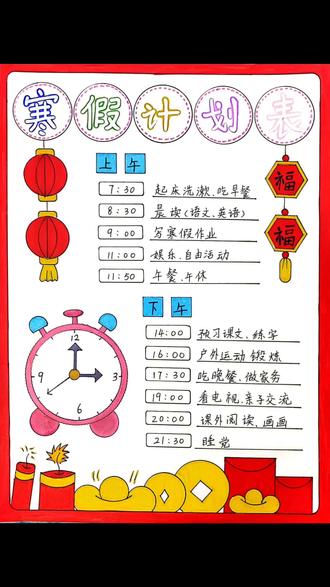 寒假计划表
福
福
上午
7:30 起床洗漱、吃早餐
8:30 晨读(语文、英语)
9:00 写寒假作业
11:00 娱乐、自由活动
11:50 午餐、午休
下午
14:00 预习课文、练字
16:00 户外运动 锻炼
17:30 吃晚餐、做家务
19:00 看电视、亲子交流
20:00 课外阅读、画画
21:30 睡觉
12
3
6
9